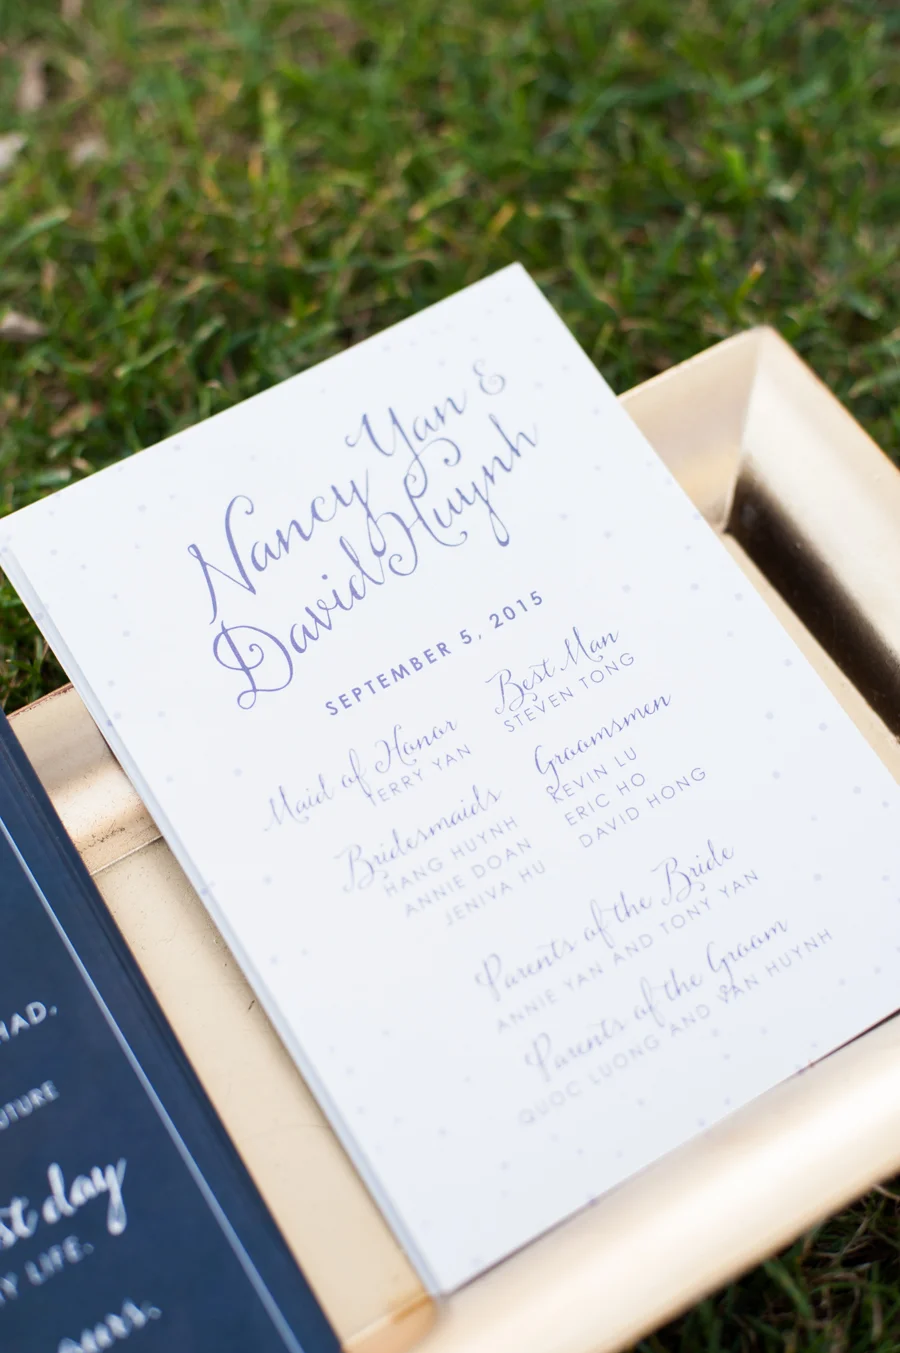 Nancy Yan &
David Huynh
SEPTEMBER 5, 2015
Maid of Honor
TERRY YAN
Best Man
STEVEN TONG
Bridesmaids
HANG HUYNH
ANNIE DOAN
JENIVA HU
Groomsmen
KEVIN LU
ERIC HO
DAVID HONG
Parents of the Bride
ANNIE YAN AND TONY YAN
Parents of the Groom
QUOC LUONG AND VAN HUYNH
HAD,
day
LIFE.